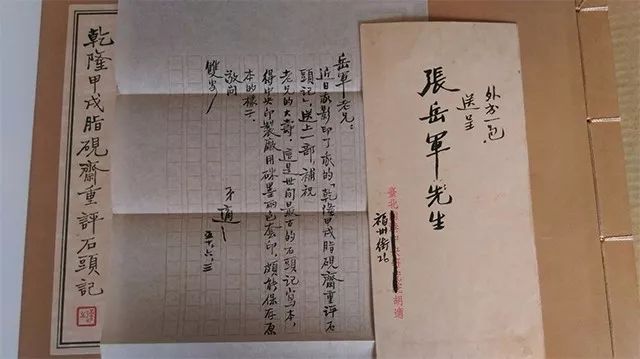 外書一包
送呈
張岳軍先生
臺北 胡適
福州街26
岳軍老兄:
近日我影印了我的「乾隆甲戌脂硯齋重評石
頭記」,送上一部,補祝
老兄的大壽,這是世間最古的石頭記寫本,
得中央印製廠用硃墨兩色套印,頗能保存原
本的樣子。
敬問
雙安
弟 適
五十、六、三
乾隆甲戌脂硯齋重評石頭記